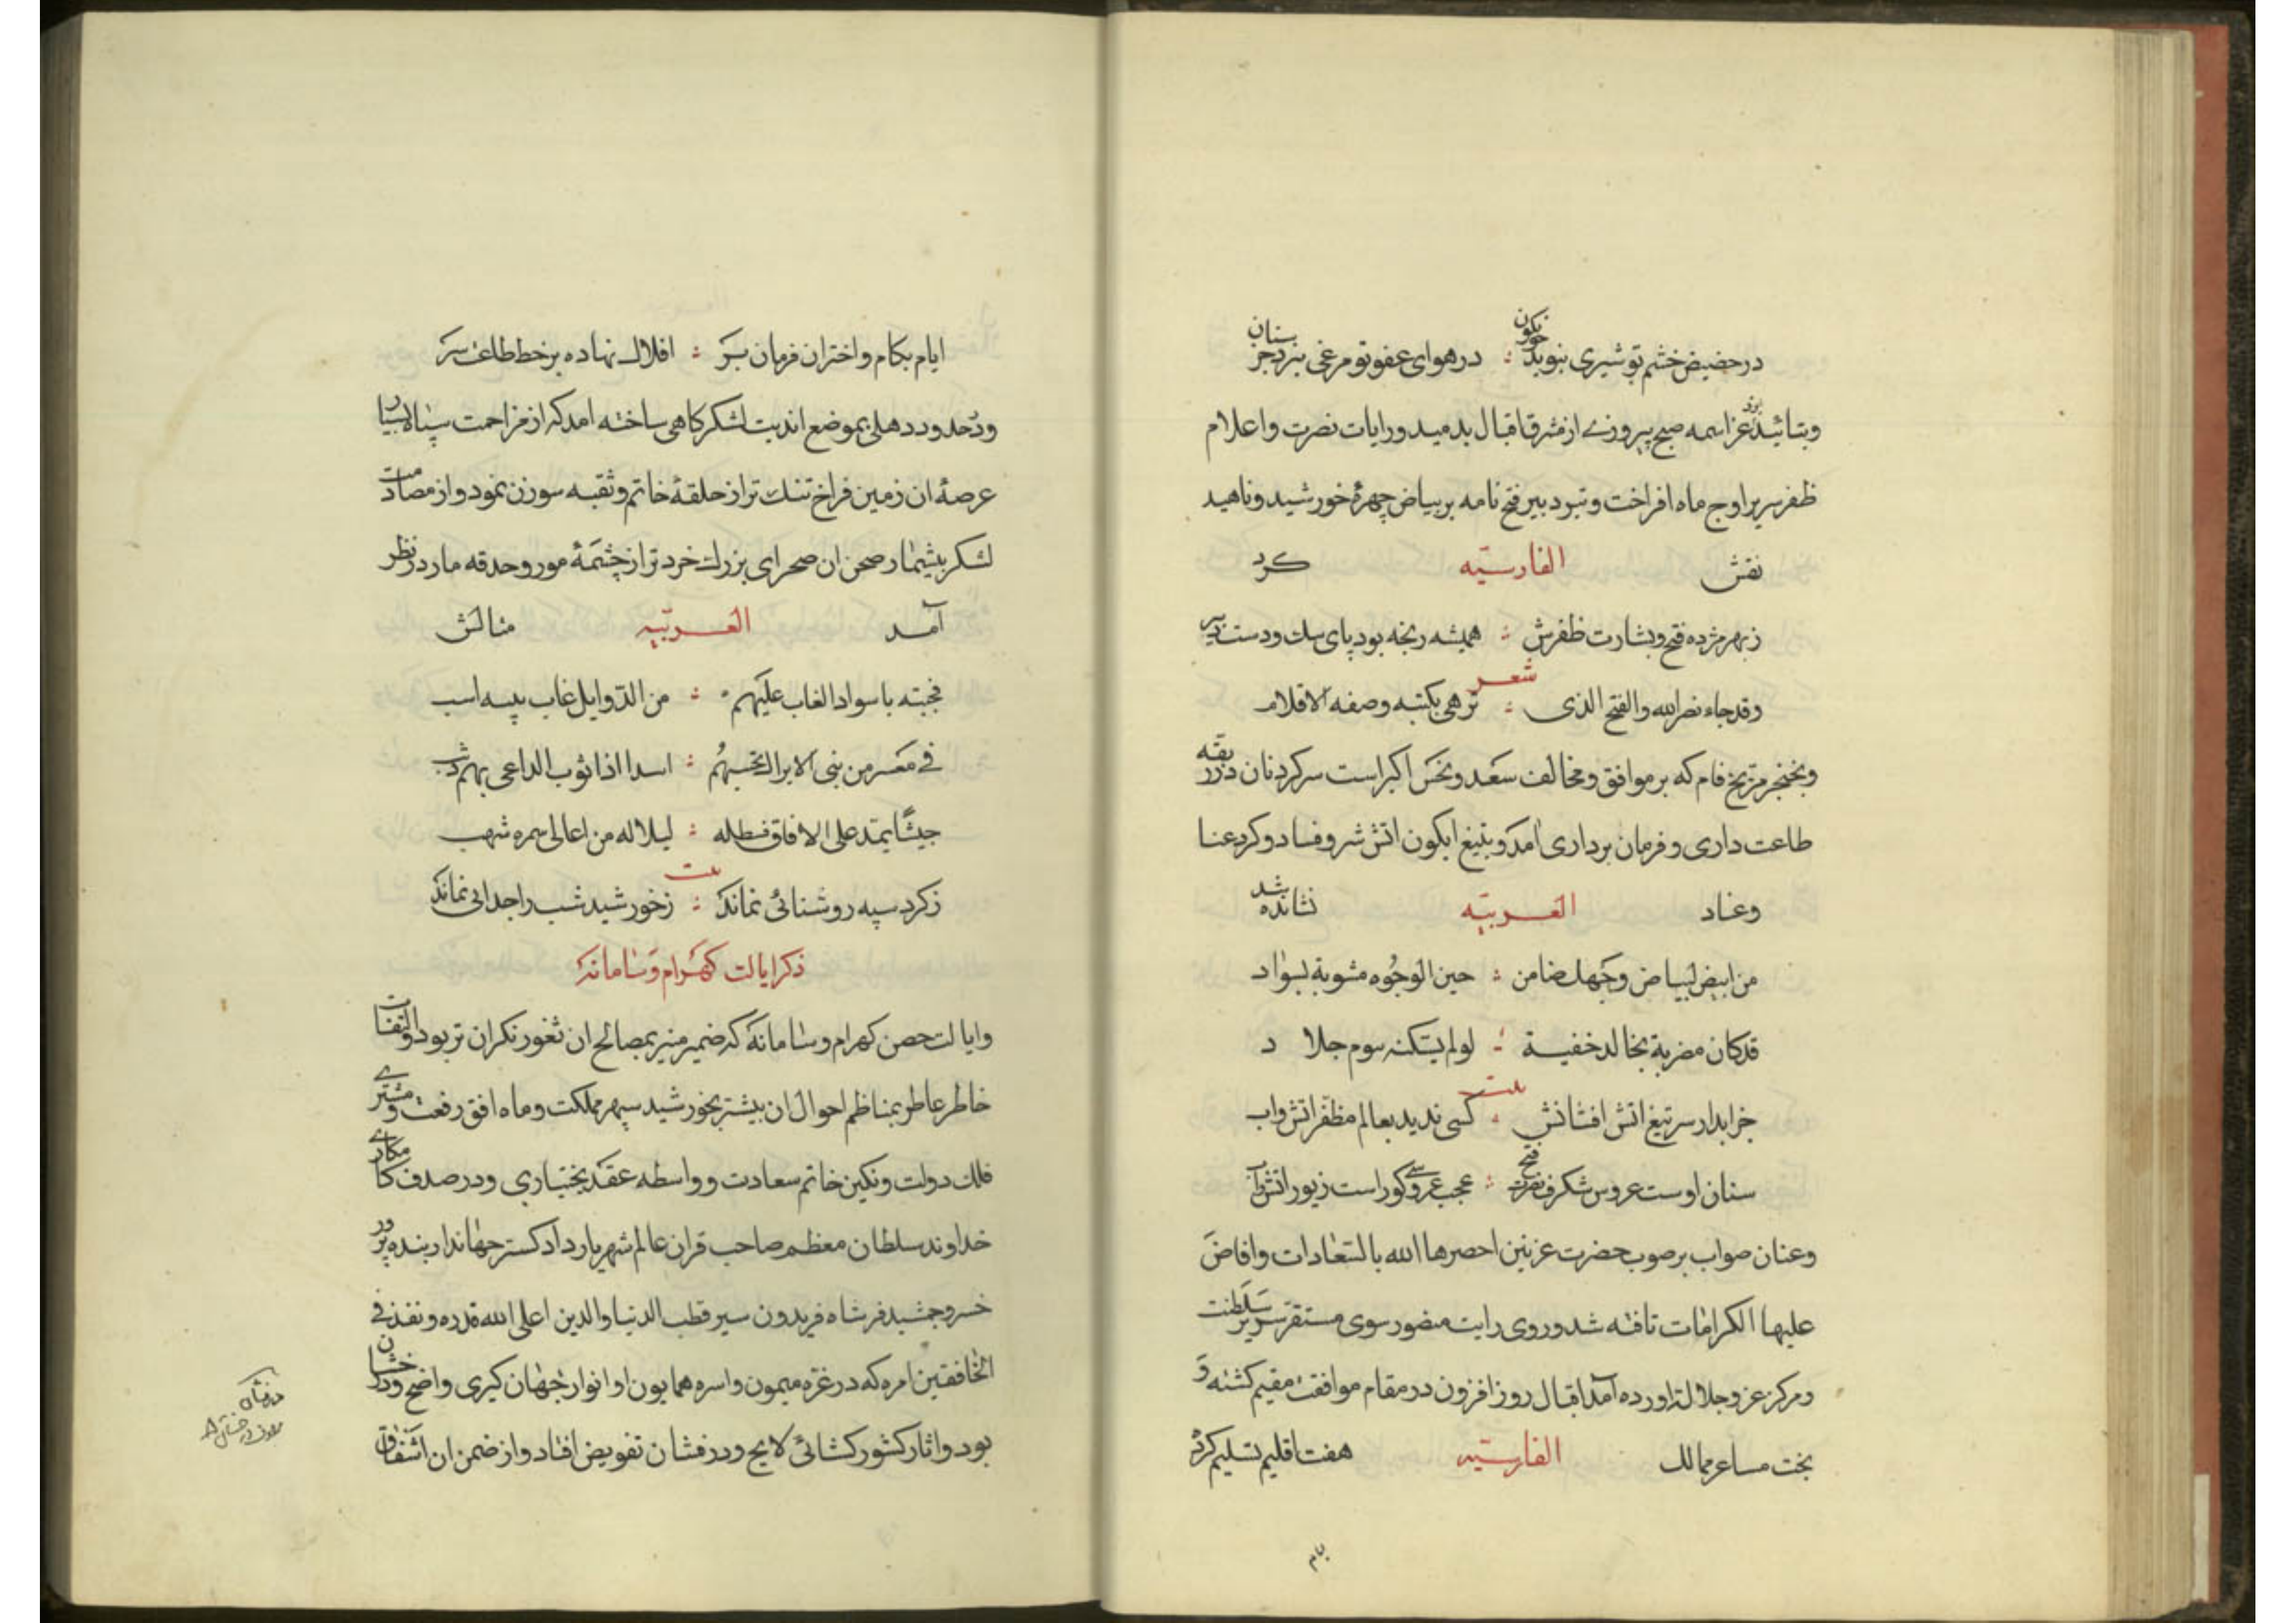 در حضیض خشم تو شیری نبوید جز بکون : در هوای عفو تو مرغی نپرد جز بستان
وبتائید ایزد عز اسمه صبح پیروزے از مشرق اقبال بدمید ورایات نصرت واعلام
ظفر سر بر اوج ماه افراخت و دبیر فتح نامه بر بیاض چهرهٔ خورشید و ناهید
نقش الفارسیّه کرد
ز بهر مژده فتح و بشارت ظفرش : همیشه رنجه بود پای پیک و دست دبیر
شعر
وقد جاء نصر الله والفتح الذی : تزهی بکتبه وصفه الاقلام
وبخنجر مریخ فام که بر موافق و مخالف سعد و نحس اکبر است سرکردنان در ربقه
طاعت داری و فرمان برداری آمد و بتیغ ابکون اتش شر و فساد و کرد عنا
وعناد العربیّه نشانده شد
من ابیض لبیاض وجهک ضامن : حین الوجوه مشوبة بسواد
قد کان مضربة بخالد خفیة : لو لم یسکنه سوم جلاد
بیت
جز ابدار سر تیغ اتش افشانش : کسی ندید بعالم مظفر اتش واب
سنان اوست عروس شکرف نصرت فتح : عجب عروسے کوراست زیور اتش واب
وعنان صواب بر صوب حضرت غزنین احصرها الله بالسّعادات وافاضَ
علیها الکرامات تافته شد و روی رایت منصور سوی مستقر سریر سلطنت
ومرکز عز و جلالة اورده آمد اقبال روز افزون در مقام موافقت مقیم کشته وَ
بخت مساعد ممالک الفارسیّه هفت اقلیم تسلیم کرده
بام
ایام بکام و اختران فرمان بر : افلاک نهاده بر خط طاعت سر
ودر حدود دهلی بموضع اندیت لشکرکاهی ساخته امد که از مزاحمت سپاه بسیار
عرصهٔ ان زمین فراخ تنک تر از حلقهٔ خاتم و ثقبه سوزن نمود و از مصادمت
لشکر بیشمار صحن ان صحرای بزرک خرد تر از چشمهٔ مور و حدقه مار در نظر
آمد العربیّه مثالش
فجبته باسواد الغاب علیهم : من الذوابل غاب
فی معشر من بنی الابراک تحسبهم : اسدا اذا ثوب الداعی بهم
جیشًا یمتد علی الافاق قسطله : لیلا له من اعالی سمره شهب
بیت
ز کرد سپه روشنائی نماند : ز خورشید شب را جدایی نماند
ذکر ایالت کهرام وسامانه
وایالت حصن کهرام وسامانه که ضمیر منیر بمصالح ان ثغور نکران تر بود و التفات
خاطر عاطر بمناظم احوال ان بیشتر بخورشید سپهر مملکت و ماه افق رفعت و مشترے
فلک دولت و نکین خاتم سعادت و واسطه عقد بختیاری و در صدف کامکارے
خداوند سلطان معظم صاحب قران عالم شهریار دادکستر جهاندار بنده پرور
خسرو جمشید فر شاه فریدون سیر قطب الدنیا والدین اعلی الله قدره ونفذ فی
الخافقین امره که در غرّه میمون واسره همایون او انوار جهان کیری واضح ودرخشان
بود و اثار کشور کشائی لایح ودرفشان تفویض افتاد و از ضمن ان اشفاق
درفشان